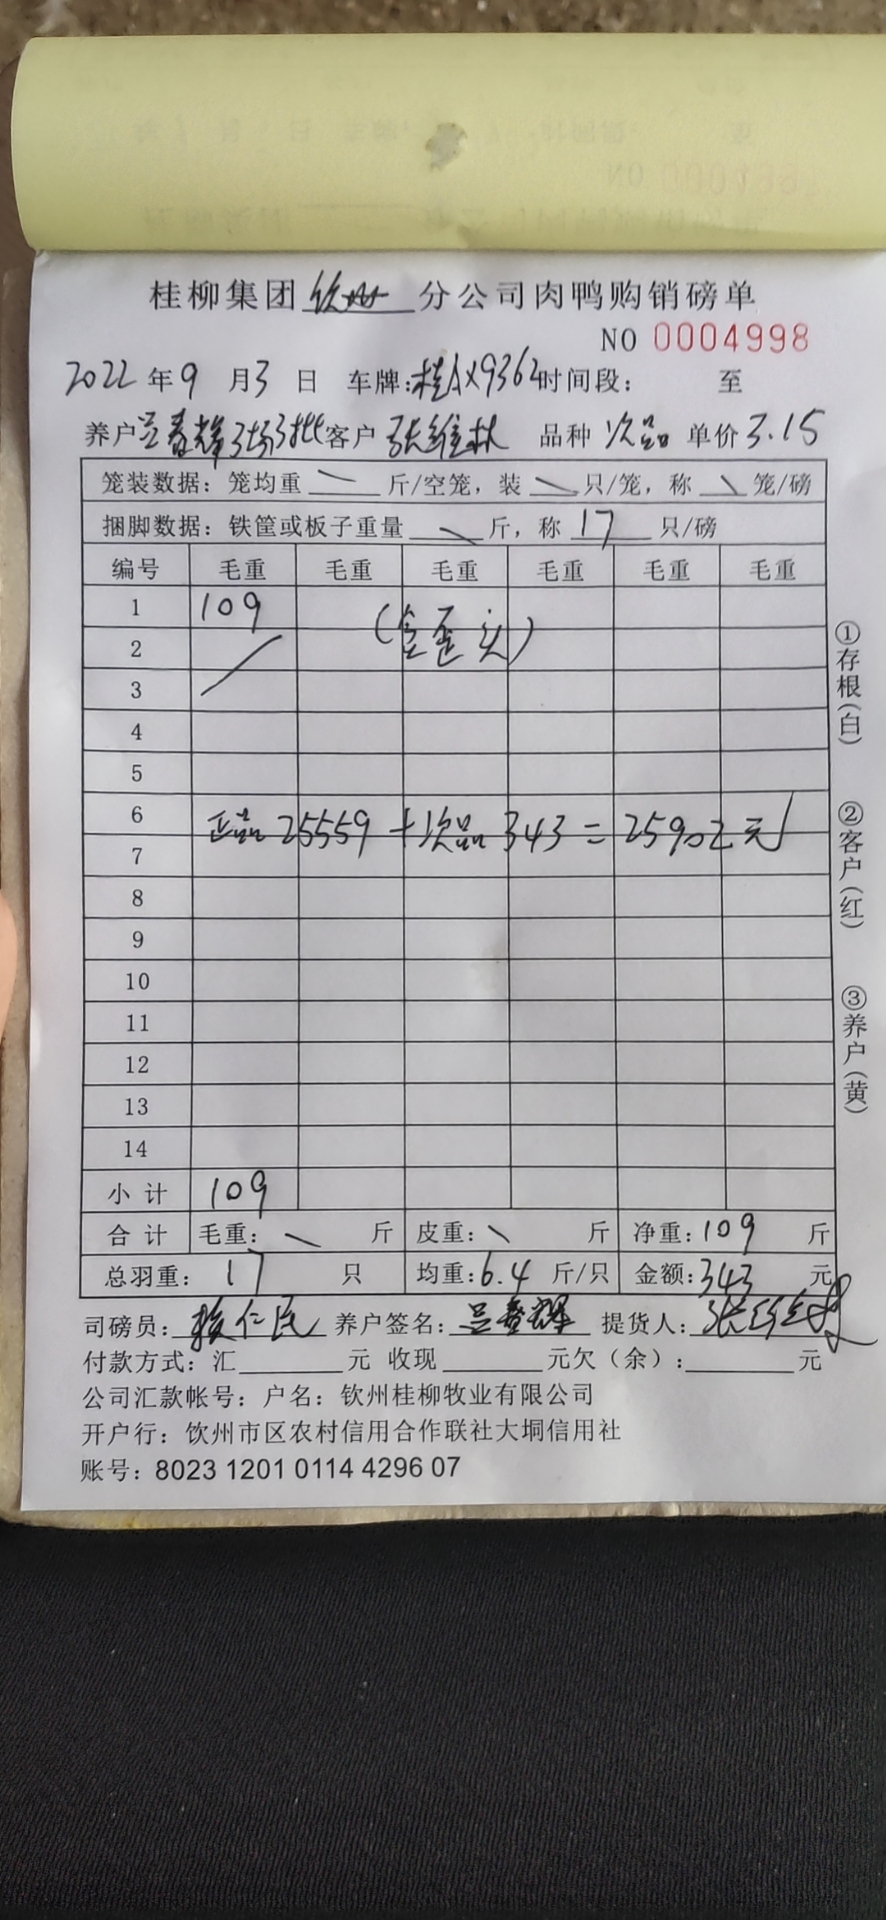 桂柳集团 钦州 分公司肉鸭购销磅单
NO 0004998
2022 年 9 月 3 日 车牌:桂AX9362 时间段: 至
养户 吕春辉3场3批 客户 张维林 品种 次品 单价 3.15
笼装数据: 笼均重 \ 斤/空笼, 装 \ 只/笼, 称 \ 笼/磅
捆脚数据: 铁筐或板子重量 \ 斤, 称 17 只/磅
编号 毛重 毛重 毛重 毛重 毛重 毛重
1 109
(含歪头)
2
3
4
5
6
正品 25559 + 次品 343 = 25902元
7
8
9
10
11
12
13
14
小 计 109
合 计 毛重: \ 斤 皮重: \ 斤 净重: 109 斤
总羽重: 17 只 均重: 6.4 斤/只 金额: 343 元
司磅员: 仁民 养户签名: 吕春辉 提货人: 张维林
付款方式: 汇 元 收现 元欠(余): 元
公司汇款帐号: 户名: 钦州桂柳牧业有限公司
开户行: 饮州市区农村信用合作联社大垌信用社
账号: 8023 1201 0114 4296 07
①存根(白)
②客户(红)
③养户(黄)